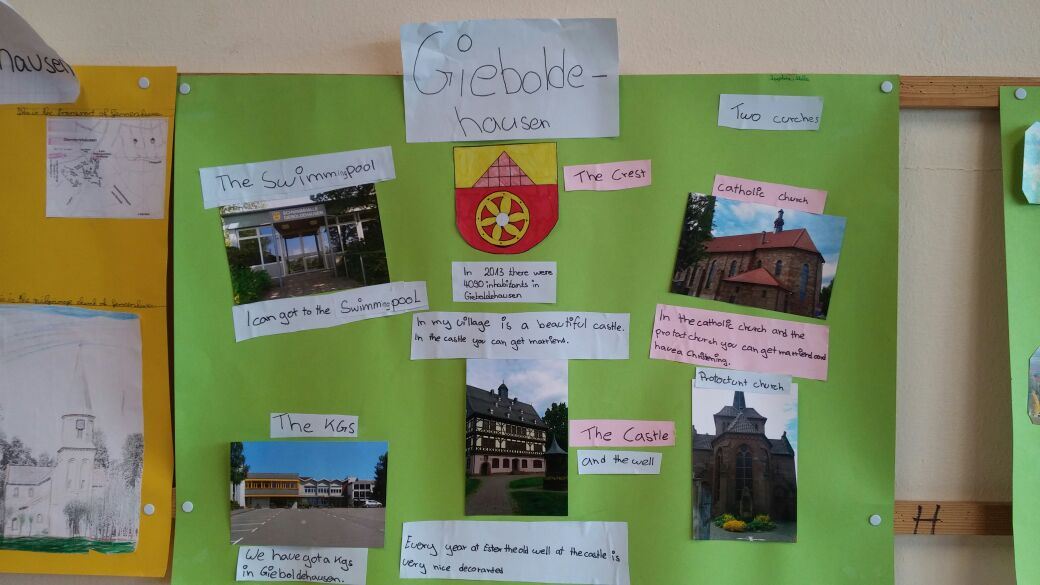 Giebolde-
hausen
hausen
This is the
The Swimmingpool
SCHWIMMHALLE
GIEBOLDEHAUSEN
I can got to the Swimmingpool
The Crest
In 2013 there were
4090 inhabitants in
Gieboldehausen
In my village is a beautiful castle.
In the castle you can get marriend.
Two curches
Catholic church
In the catholic church and the
protact church you can get marriend and
have a Christening.
Protoctunt church
The KGs
We have got a Kgs
in Gieboldehausen.
The Castle
and the well
Every year at Ester the old well at the castle is
very nice decorantes
H